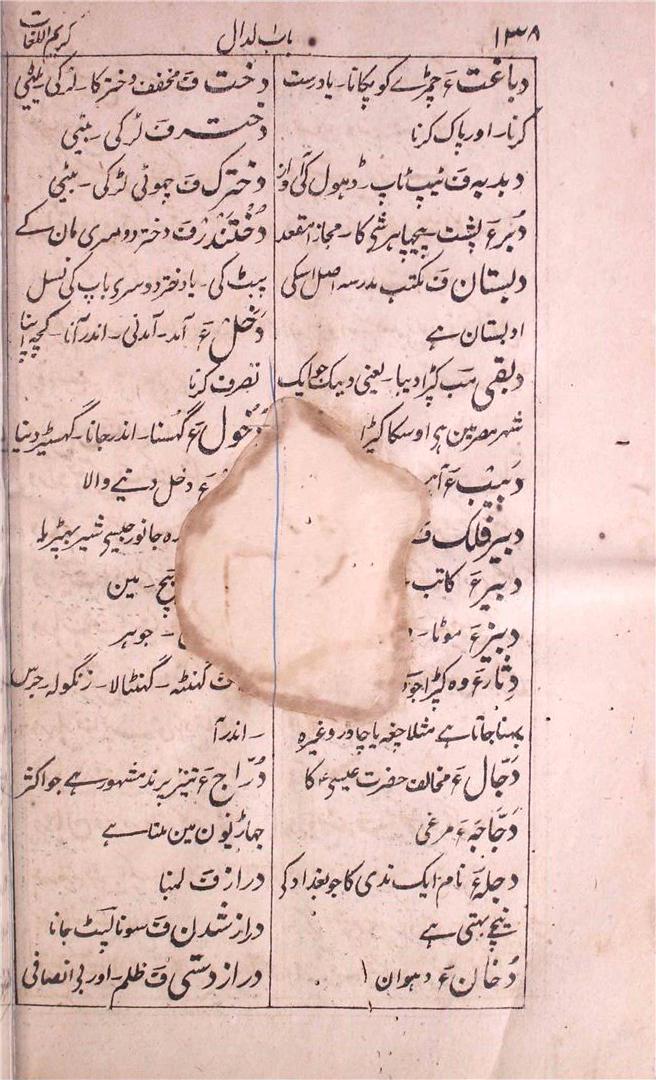 ۱۳۸
باب الدال
کریم اللغات
دباغت ع چمڑے کو پکانا۔ یا درست
کرنا۔ اور پاک کرنا
دبدبہ ف ٹیپ ٹاپ۔ ڈھول کی آواز
دُبر ع پشت۔ پیچھا ہر شی کا۔ مجازاً مقعد
دبستان ف مکتب مدرسہ اصل اسکی
ادبستان ہے
دبقی مب کپڑا دیبا۔ یعنی دبیک جو ایک
شہر مصر مین ہی اوسکا کپڑا
دَبیب ع
دبیر فلک ف
دبیر ع کاتب۔
دبیز ع موٹا۔
دِثار ع وہ کپڑا جو
پہنا جاتا ہے مثلاً چغہ یا چادر وغیرہ
دَجّال ع مخالف حضرت عیسیٰ ؑ کا
دَجّاجہ ع مرغی
دجلہ ع نام ایک ندی کا جو بغداد کی
نیچے بہتی ہے
دُخان ع دہوان
دخت ف مخفف دختر کا۔ لڑکی۔ بیٹی
دختر ف لڑکی۔ بیٹی
دخترک ف چھوٹی لڑکی۔ بیٹی
دُختندر ف دختر دوسری مان کے
پیٹ کی۔ یا دختر دوسری باپ کی نسل
دَخل ع آمد۔ آمدنی۔ اندر آنا۔ کچھ اپنا
تصرف کرنا
دُخول ع گھسنا۔ اندر جانا۔ گھسیڑ دینا
ع دخل دینے والا
جانور جیسی شیر بھیڑیا
بیچ۔ مین
۔ جوہر
ف گھنٹہ۔ گھنٹالا۔ زنگولہ۔ جرس
۔ اندر آ
دُرّاج ع تیتر پرند مشہور ہے جو اکثر
جھاڑیون مین ملتا ہے
دراز ف لمبا
دراز شدن ف سونا لیٹ جانا
دراز دستی ف ظلم۔ اور بی انصافی